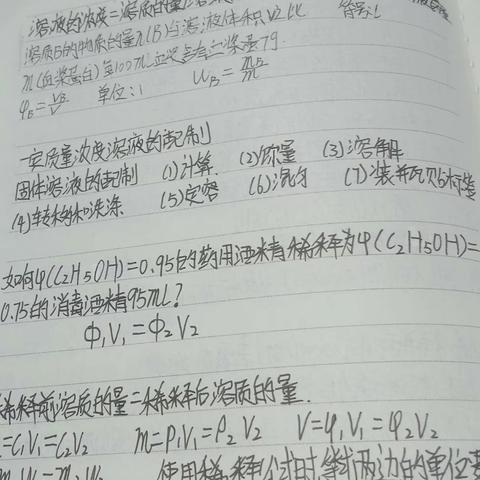 溶液的浓度=溶质的量/溶
溶质B的物质的量n(B)与溶液体积V之比 符号:
m(血浆蛋白)每100ml血浆含血浆蛋7g.
φB=VB/V 单位:1 WB=mB/m
一定质量浓度溶液的配制
固体溶液的配制 (1)计算 (2)称量 (3)溶解
(4)转移和洗涤 (5)定容 (6)混匀 (7)装并瓦贝占标签
如何φ(C2H5OH)=0.95的药用酒精稀释为φ(C2H5OH)=
0.75的消毒酒精95ml?
Φ1V1=Φ2V2
稀释前溶质的量=稀释后溶质的量.
=C1V1=C2V2 m=ρ1V1=ρ2V2 V=φ1V1=φ2V2
m1W1=m2W2 使用稀释公式时,等式两边的单位要